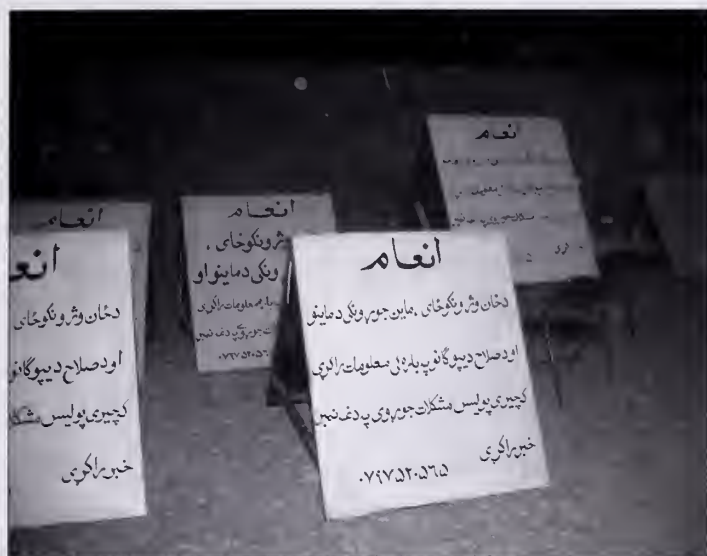 انعام
دځان وژونکوځای ،ماین جوړونکی دماینو
اودصلاح دیپوګانو په باره ئی معلومات راکړی
کچیری پولیس مشکلات جوړوی په دغه نمبر
خبر راکړی
۰۷۹۷۵۲۰۵۶۵
انعـ
دځان وژونکوځای
اودصلاح دیپوګانو
کچیری پولیس مشکـ
خبر راکړی
انعام
وژونکوځای ،
ونکی دماینو او
معلومات راکړی
جوړوی په دغه نمبر
انعام
انعام